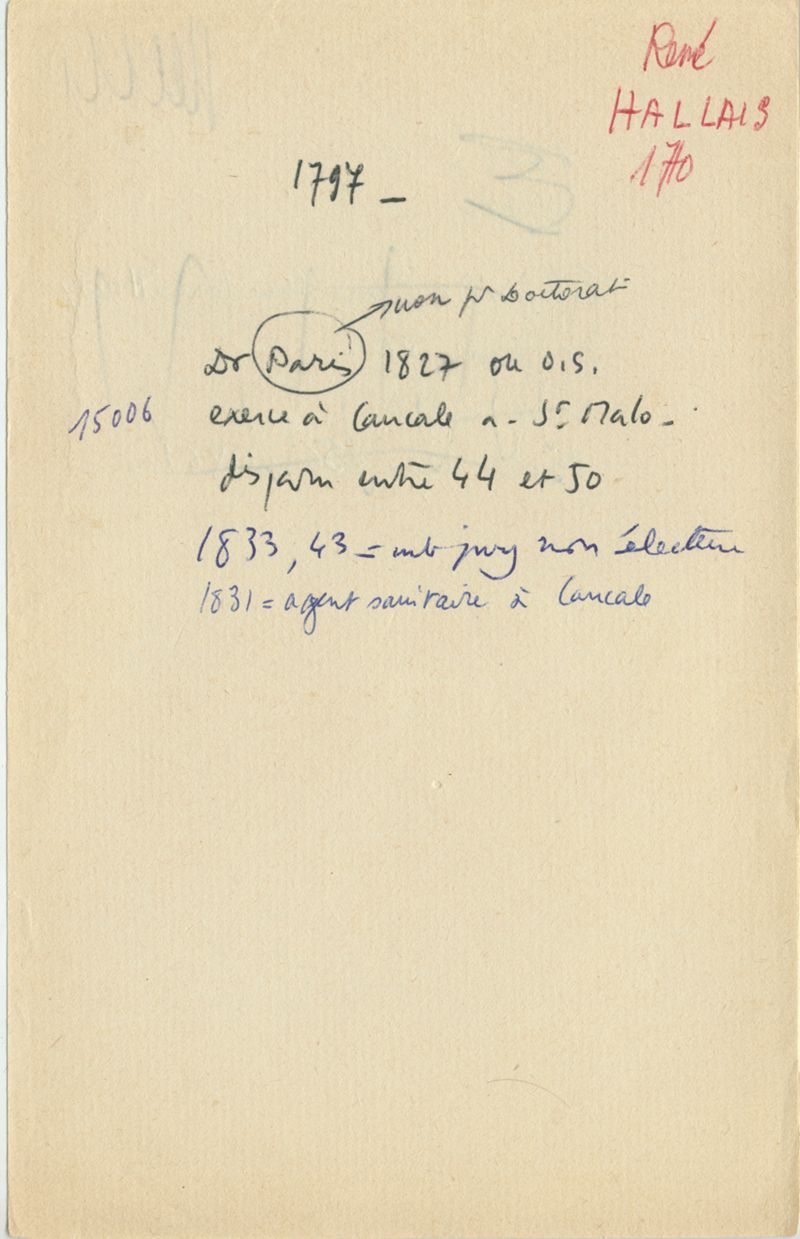 René
HALLAIS
170
1797 _
non pr Doctorat
Dr Paris 1827 ou O.S.
15006
exerce à Cancale a - St Malo -
disparu entre 44 et 50
1833, 43 = mb jury non électeur
1831 = agent sanitaire à Cancale